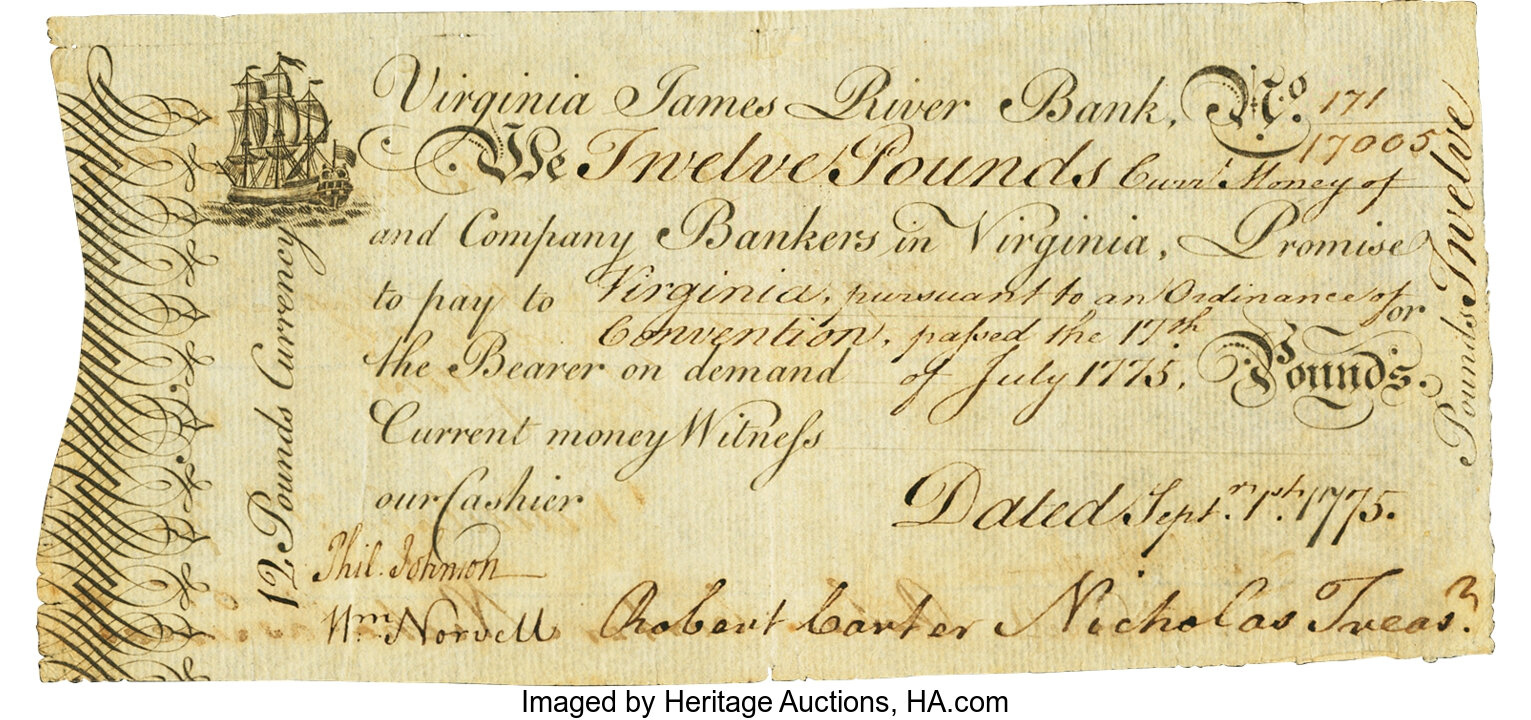 Virginia James River Bank, No. 171
17005
We Twelve Pounds Currt. Money of
and Company Bankers in Virginia, Promise
to pay to Virginia, pursuant to an Ordinance of or
Convention, paſsed the 17th
the Bearer on demand of July 1775. Pounds.
Current money Witneſs
our Cashier
Dated Septr. 1st. 1775.
Phil. Johnson
Wm. Norvell Robert Carter Nicholas Treasr.
12 Pounds Currency
Pounds Twelve
Imaged by Heritage Auctions, HA.com